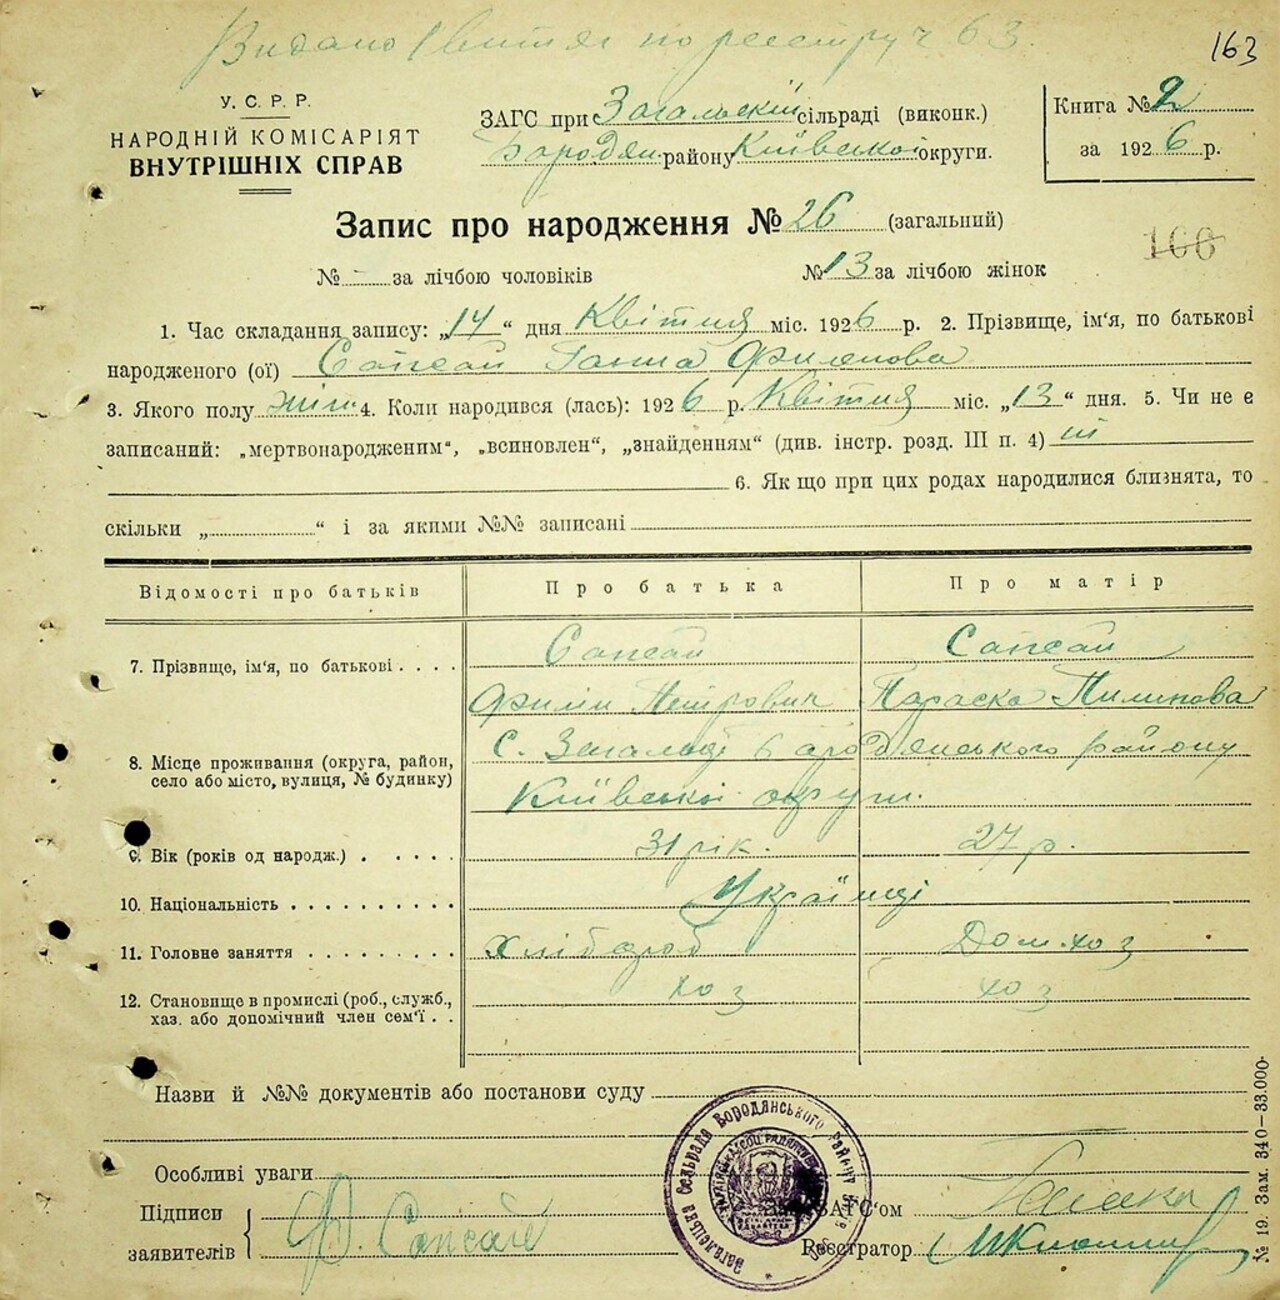 Видано Квиток по реєстру ч 63.
163
У. С. Р. Р.
НАРОДНІЙ КОМІСАРІЯТ
ВНУТРІШНІХ СПРАВ
ЗАГС при Загальскій сільраді (виконк.)
Бородян. району Київської округи.
Книга № 2
за 1926 р.
Запис про народження № 26 (загальний)
100
№ - за лічбою чоловіків № 13 за лічбою жінок
1. Час складання запису: „14“ дня Квітня міс. 1926 р. 2. Прізвище, ім'я, по батькові
народженого (ої) Сапсай Ганна Филипова
3. Якого полу жін. 4. Коли народився (лась): 1926 р. Квітня міс. „13“ дня. 5. Чи не є
записаний: „мертвонародженим“, „всиновлен“, „знайденням“ (див. інстр. розд. III п. 4) ні
6. Як що при цих родах народилися близнята, то
скільки „ “ і за якими №№ записані
Відомості про батьків Про батька Про матір
7. Прізвище, ім'я, по батькові Сапсай Сапсай
Филип Петрович Параска Пилипова
8. Місце проживання (округа, район, село або місто, вулиця, № будинку) с. Загальці Бородянського району
Київської округи.
9. Вік (років од народж.) 31 рік. 27 р.
10. Національність Українці
11. Головне заняття Хлібороб Дом. хоз
12. Становище в промислі (роб., служб., хаз. або допомічний член сем'ї хоз хоз
Назви й №№ документів або постанови суду
Особливі уваги
Підписи
заявителів
Ф. Сапсай
Загалецька Сельрада Бородянського Району
ЗАГС'ом
Реєстратор
№ 19. Зам. 340—33.000